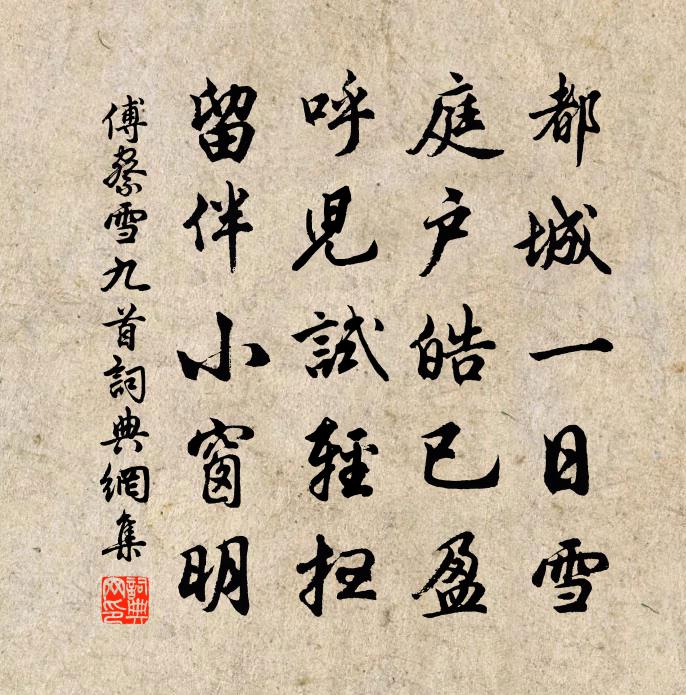 都城一日雪
庭户皓已盈
呼兒試輕扫
留伴小窗明
傅察雪九首詞典網集
詞典網印